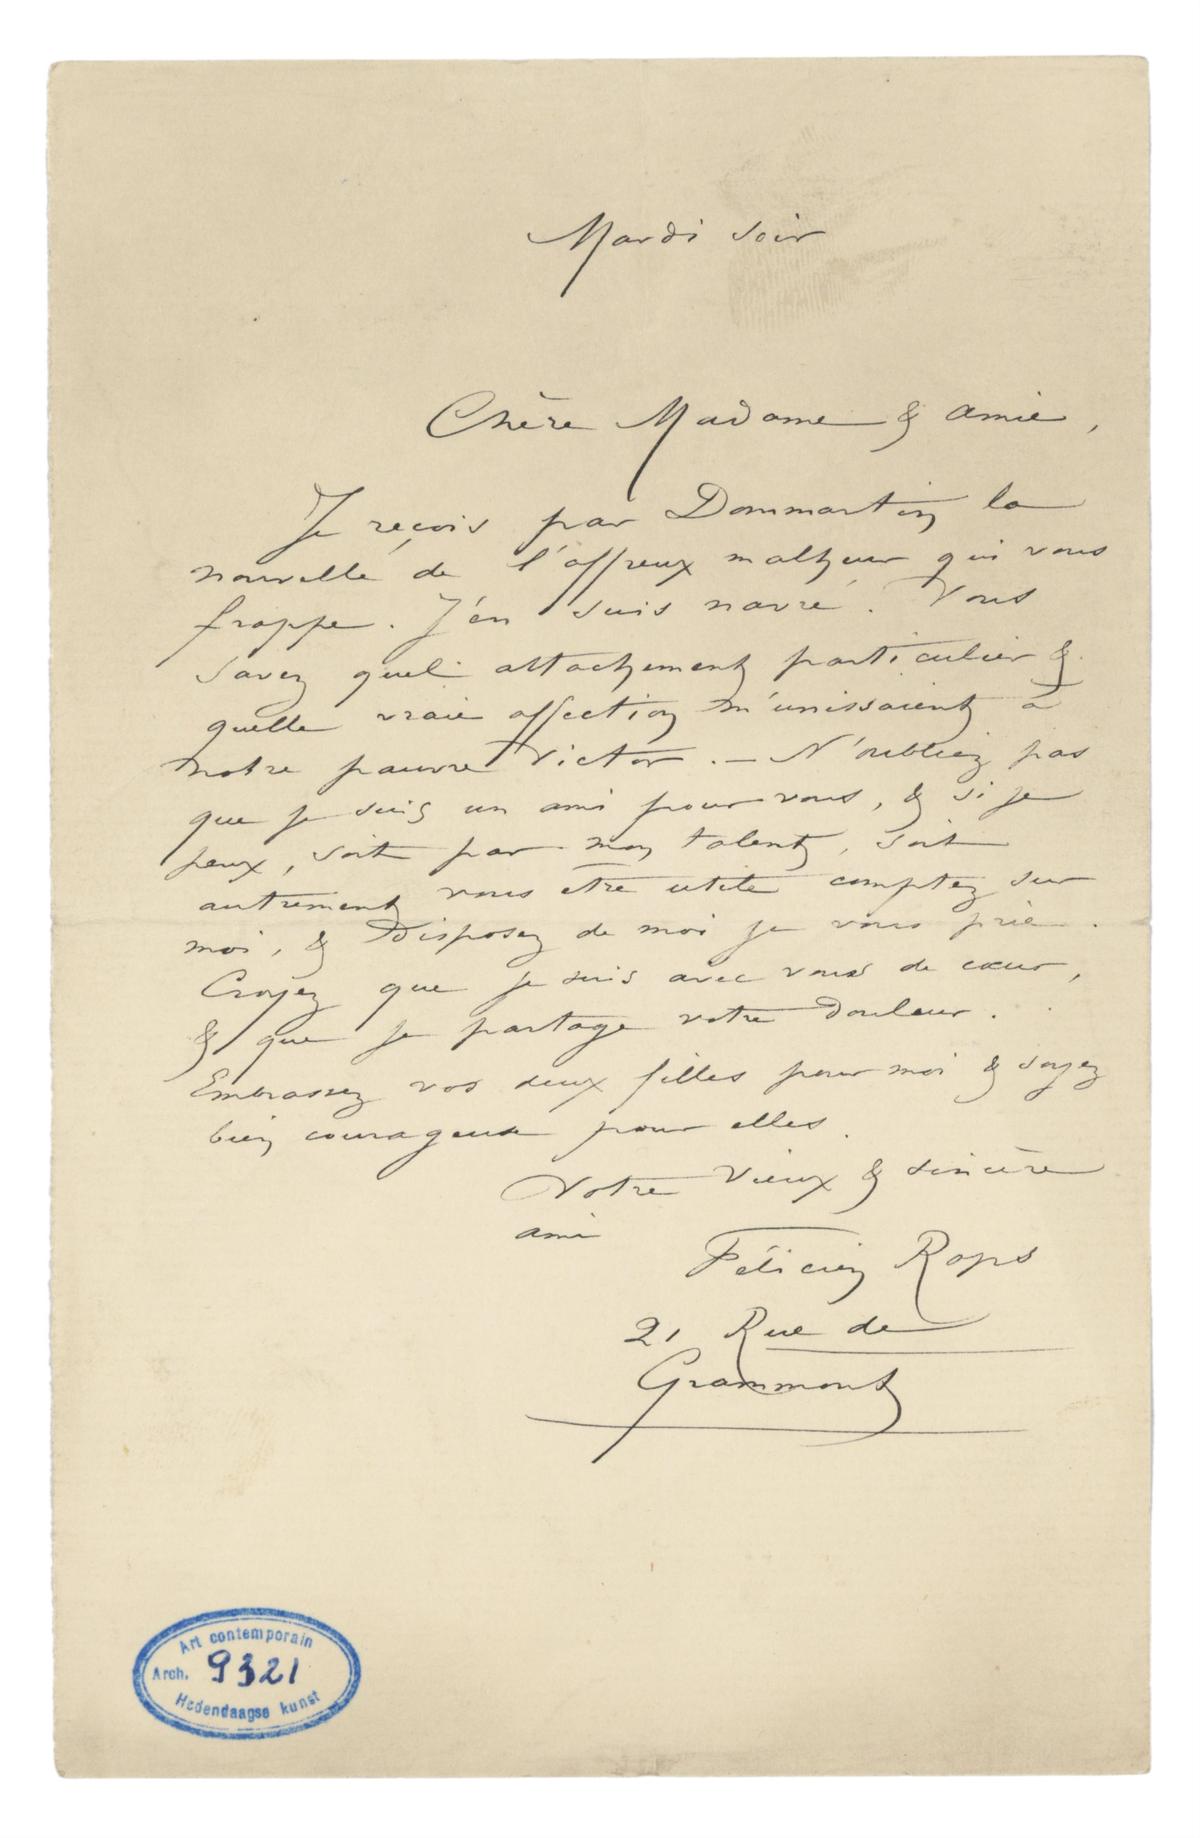 Mardi soir
Chère Madame & amie,
Je reçois par Dommartin la
nouvelle de l'affreux malheur qui vous
frappe. J'en suis navré. Vous
savez quel attachement particulier &
quelle vraie affection m'unissaient à
notre pauvre Victor. — N'oubliez pas
que je suis un ami pour vous, & si je
peux, soit par mon talent, soit
autrement vous être utile comptez sur
moi, & disposez de moi je vous prie.
Croyez que je suis avec vous de cœur,
& que je partage votre douleur.
Embrassez vos deux filles pour moi & soyez
bien courageuse pour elles.
Votre vieux & sincère
ami
Félicien Rops
21 Rue de
Grammont
Art contemporain
Arch. 9321
Hedendaagse kunst